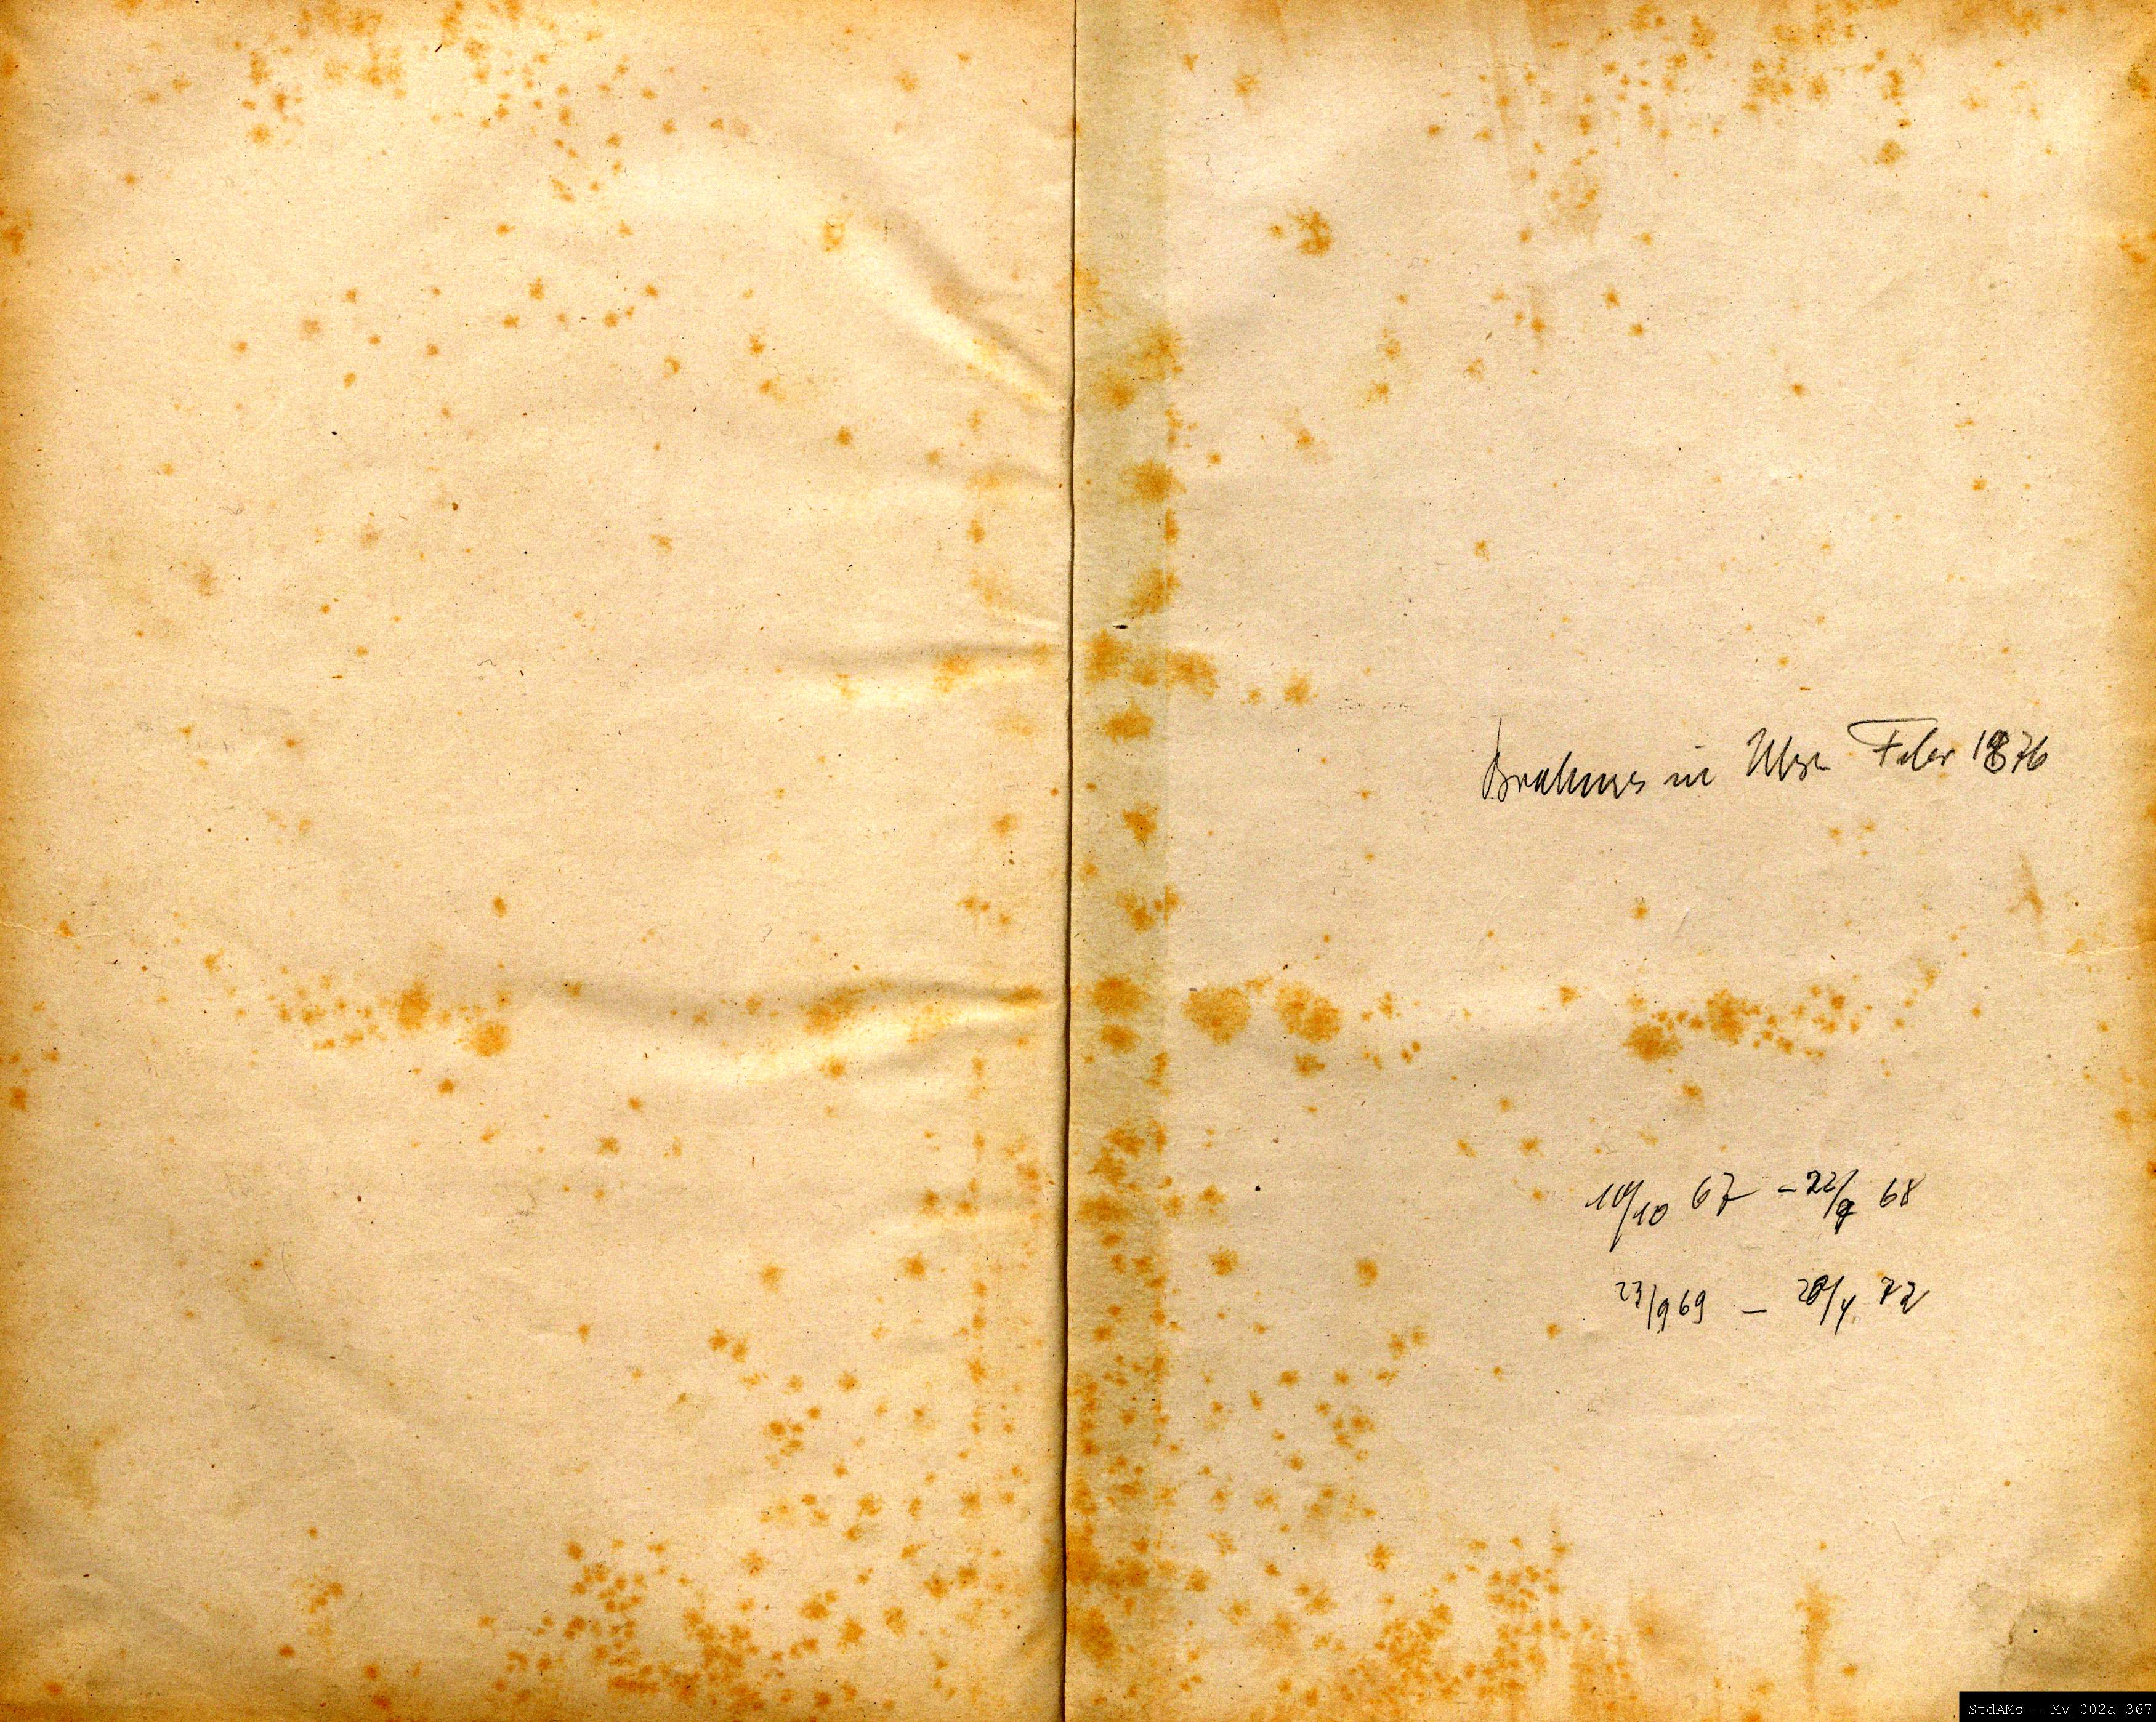 Brahms in Msr Febr 1876
10/10 67 – 22/9 68
23/9 69 – 20/4 72
StdAMs – MV_002a_367